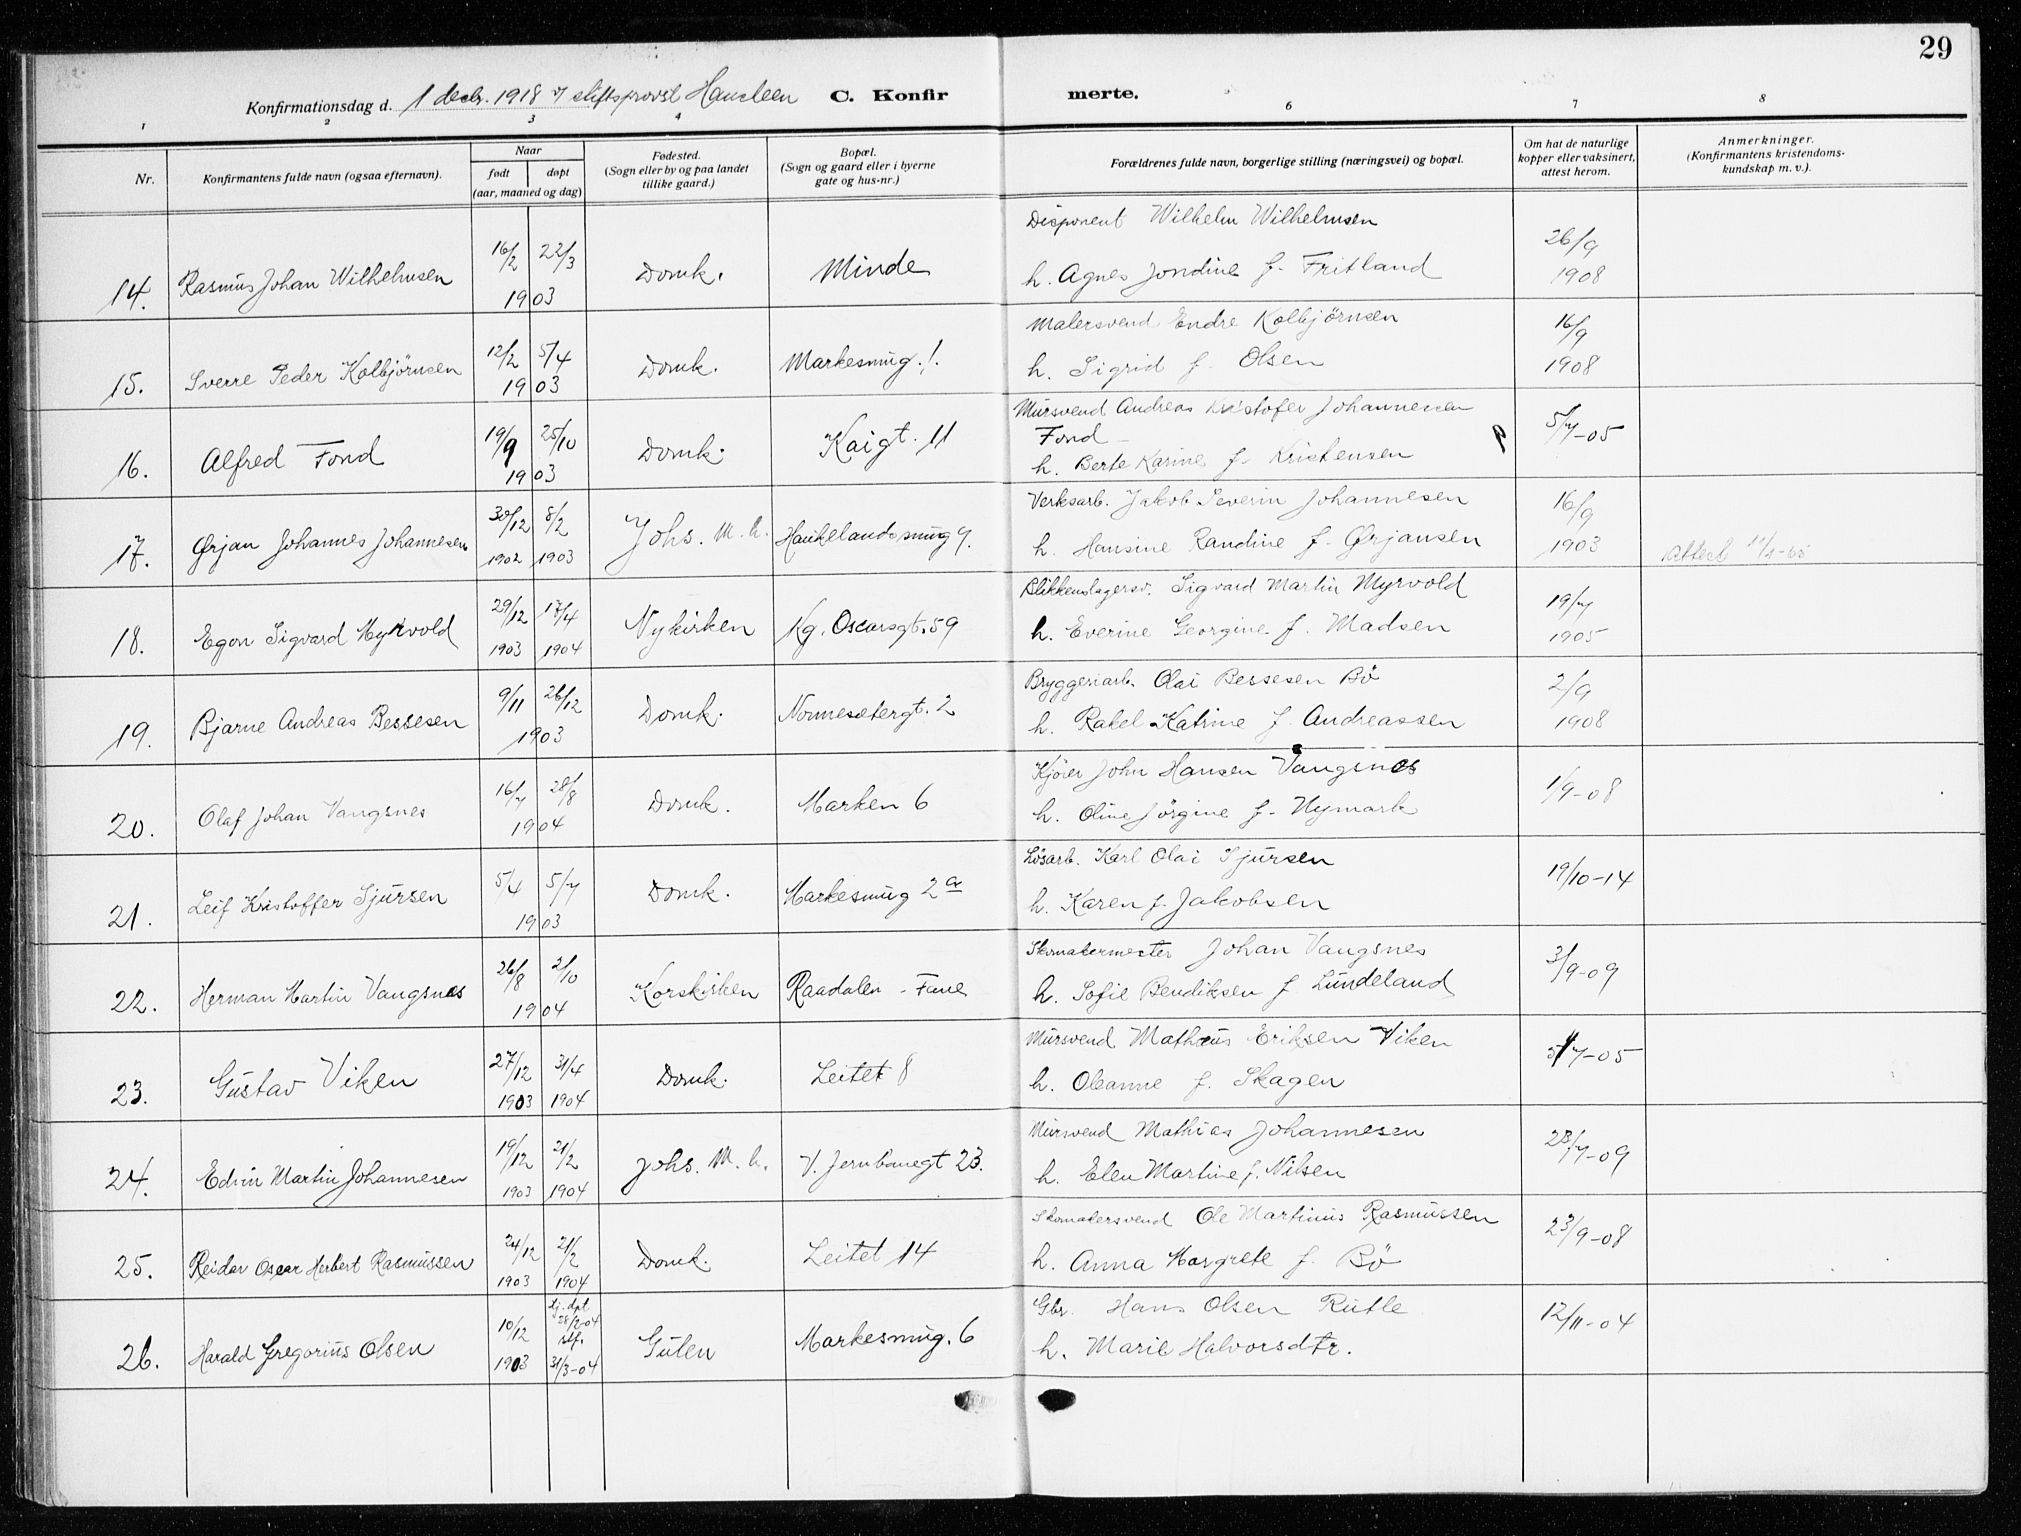 29
Konfirmationsdag d. 1 decbr. 1918 v/ stiftsprovst C. Konfirmerte.
1 2 3 4 6 7 8
Nr. Konfirmantens fulde navn (ogsaa efternavn). Naar født døpt (aar, maaned og dag) Fødested. (Sogn eller by og paa landet tillike gaard.) Bopæl. (Sogn og gaard eller i byerne gate og hus-nr.) Forældrenes fulde navn, borgerlige stilling (næringsvei) og bopæl. Om hat de naturlige kopper eller vaksinert, attest herom. Anmerkninger. (Konfirmantens kristendoms-kundskap m. v.).
14. Rasmus Johan Wilhelmsen 16/2 22/3 1903 Domk. Minde Disponent Wilhelm Wilhelmsen 26/9
h. Agnes Jondine f. Fritland 1908
15. Sverre Peder Kolbjörnsen 12/2 5/4 1903 Domk. Markesmug. 1. Malersvend Endre Kolbjörnsen 16/9
h. Sigrid f. Olsen 1908
16. Alfred Fond 19/9 25/10 1903 Domk. Kaigt. 11 Mursvend Andreas Kristofer Johannessen
Fond 5/7-05
h. Berte Karine f. Kristensen
17. Ørjan Johannes Johannesen 30/12 1902 8/2 1903 Johs. M.h. Haukelandsmug 9. Verksarb. Jakob Severin Johannesen 16/9
h. Hansine Randine f. Ørjansen 1903 Attest
18. Egon Sigvard Myrvold 29/12 1903 17/4 1904 Nykirken Kg. Oscarsgt. 59 Blikkenslagersv. Sigvard Martin Myrvold 19/7
h. Everine Georgine f. Madsen 1905
19. Bjarne Andreas Bessesen 9/11 26/12 1903 Domk. Nonnesetergt. 2 Bryggeriarb. Olai Bessesen Bö 2/9
h. Rakel Katrine f. Andreassen 1908
20. Olaf Johan Vangsnes 16/7 28/8 1904 Domk. Marken 6 Kjörer John Hansen Vangsnes 1/9-08
h. Oline Jörgine f. Nymark
21. Leif Kristoffer Sjursen 5/4 5/7 1903 Domk. Markesmug 2a Løsarb. Karl Olai Sjursen 19/10-14
h. Karen f. Jakobsen
22. Herman Martin Vangsnes 26/8 2/10 1904 Korskirken Raadalen - Fane Skomakermester Johan Vangsnes 3/9-09
h. Sofie Bendiksen f. Lundeland
23. Gustav Viken 27/12 1903 31/4 1904 Domk. Leitet 8 Mursvend Matheus Eriksen Viken 5/7-05
h. Oleanne f. Skagen
24. Edvin Martin Johannesen 19/12 1903 21/2 1904 Johs. M.h. V. Jernbanegt 23. Mursvend Mathias Johannesen 28/7-09
h. Elen Martine f. Nilsen
25. Reidar Oscar Herbert Rasmussen 24/12 1903 21/2 1904 Domk. Leitet 14 Skomakersvend Ole Martinus Rasmussen 23/9-08
h. Anna Margrete f. Bö
26. Harald Gregorius Olsen 10/12 1903 hj. dpt 28/2-04 stf. 31/3-04 Gulen Markesmug. 6 Gbr. Hans Olsen Rutle 12/11-04
h. Marie Halvorsdtr.